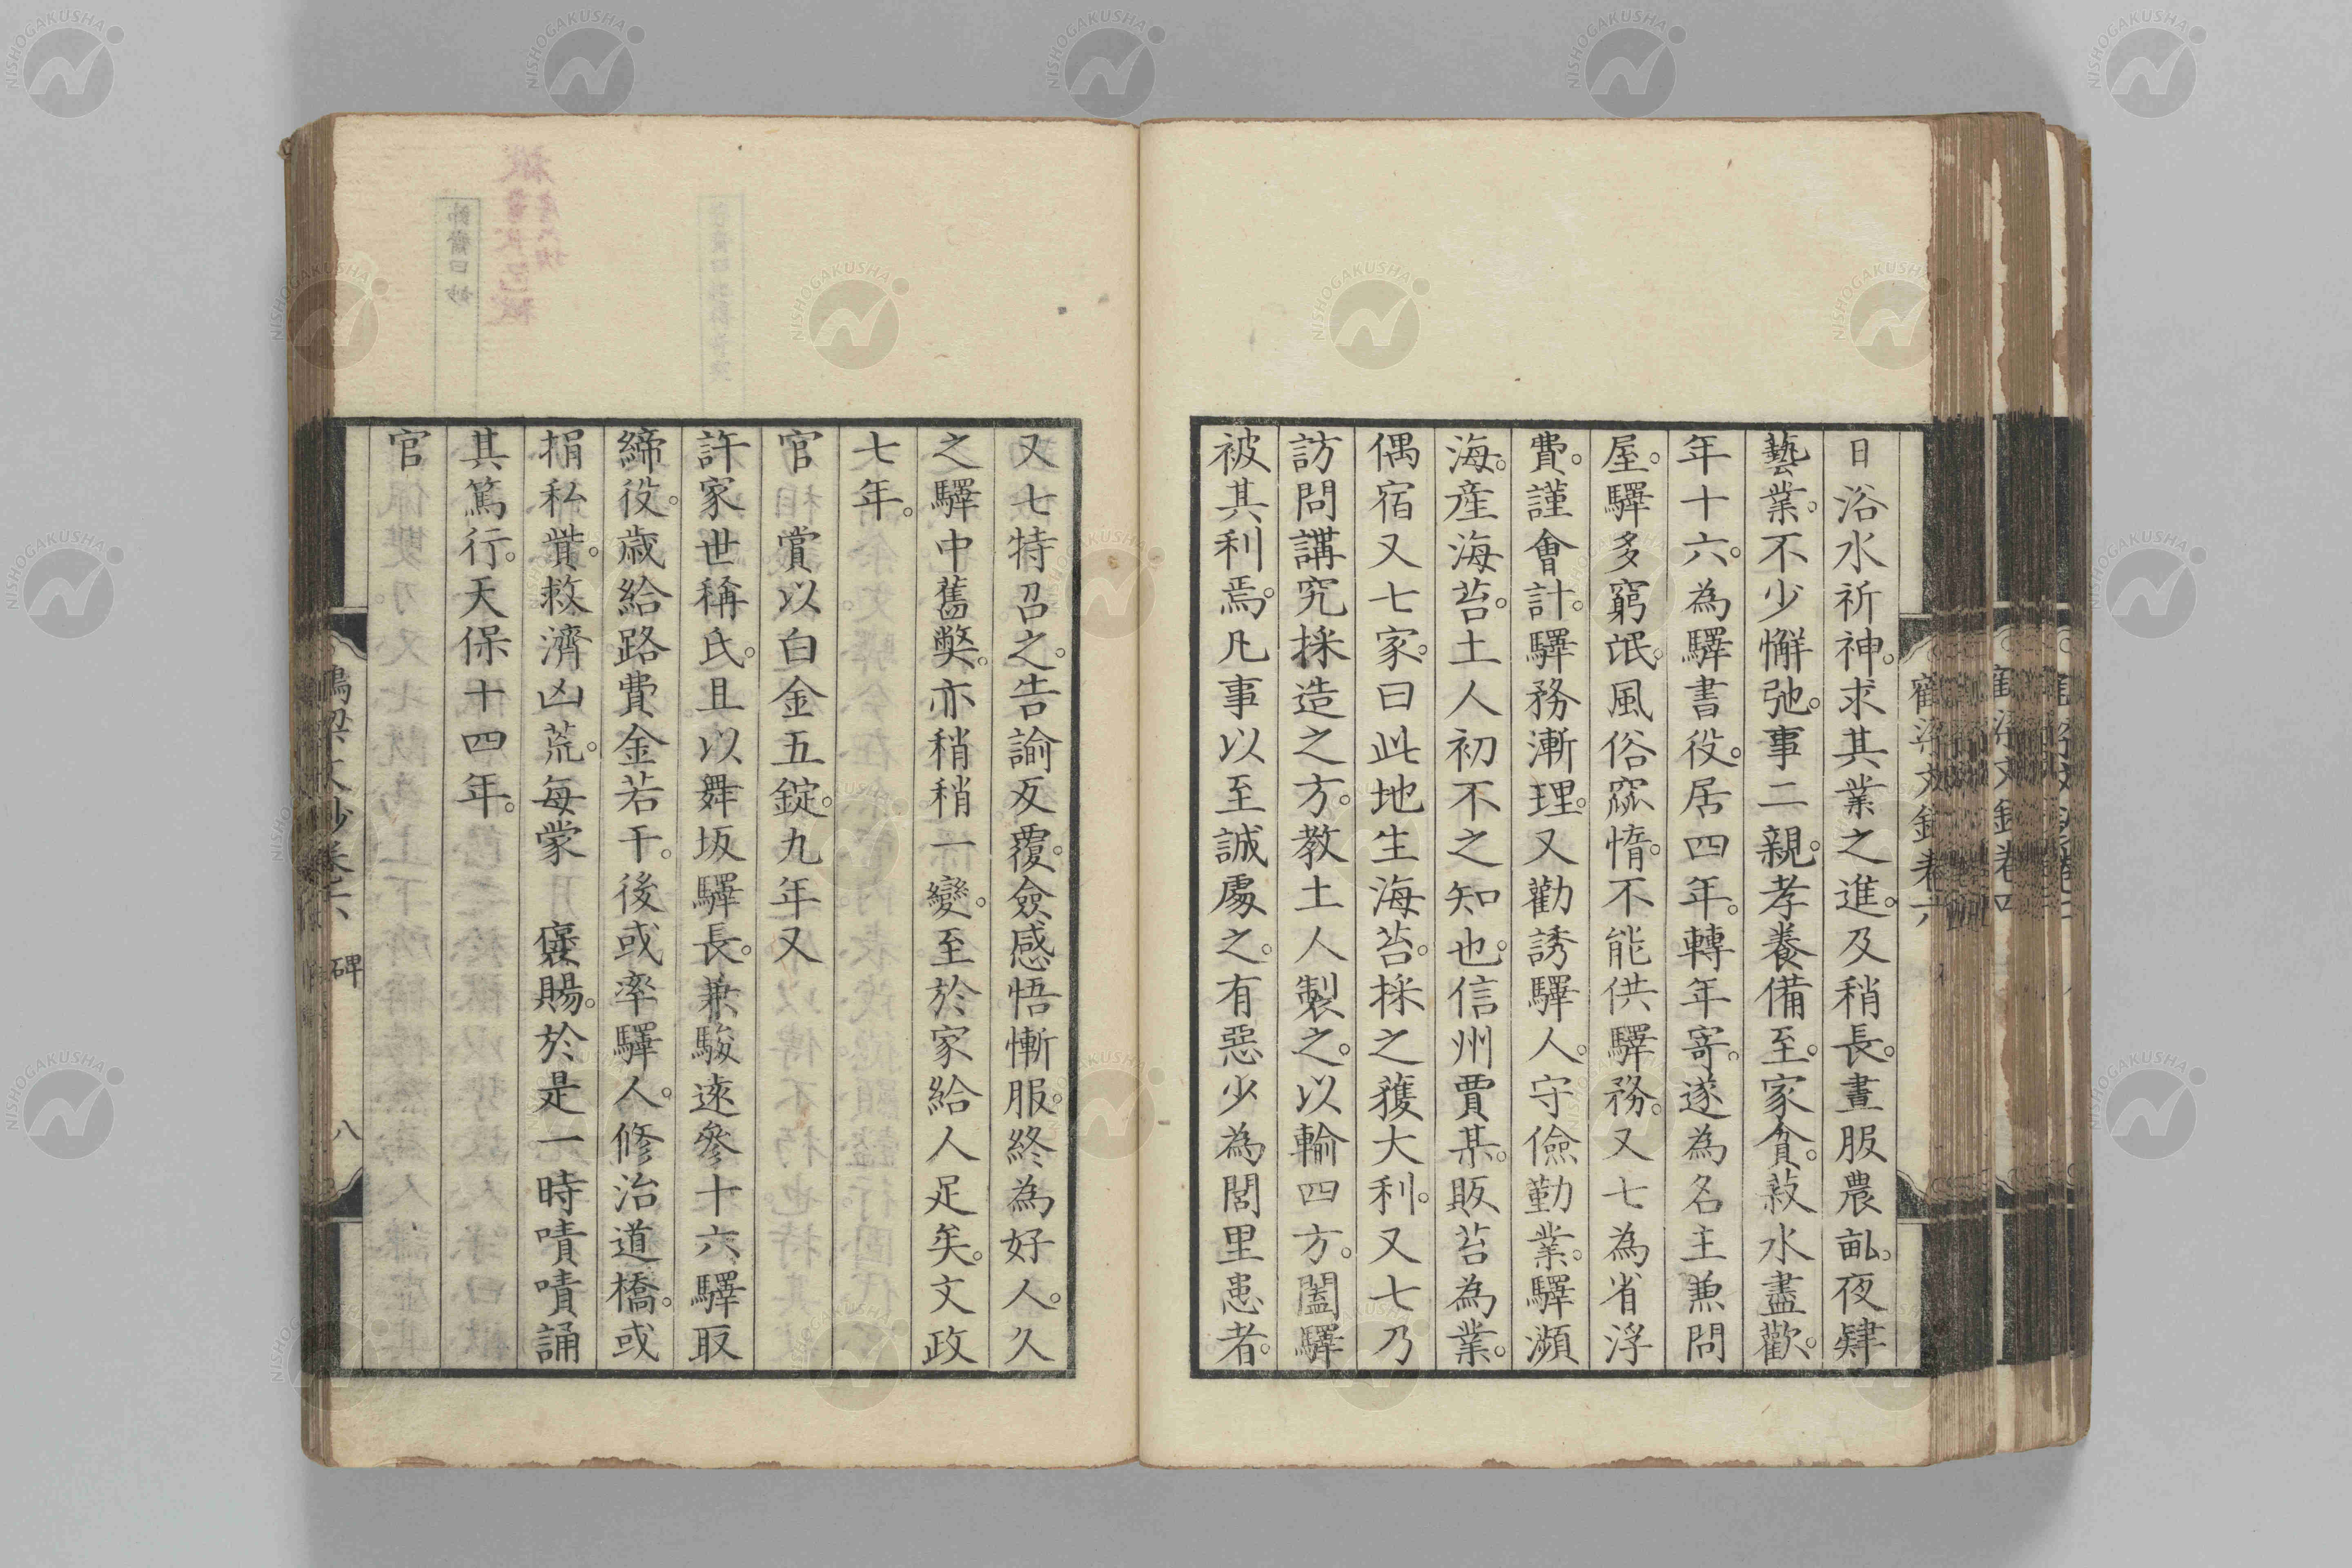 日浴水祈神。求其業之進。及稍長。晝服農畝。夜肄
藝業。不少懈弛。事二親。孝養備至。家貧。菽水盡歡。
年十六。為驛書役。居四年。轉年寄。遂為名主兼問
屋。驛多窮氓。風俗窳惰。不能供驛務。又七為省浮
費。謹會計。驛務漸理。又勸誘驛人。守儉勤業。驛瀕
海。産海苔。土人初不之知也。信州賈某。販苔為業。
偶宿又七家。曰此地生海苔。採之獲大利。又七乃
訪問講究採造之方。教土人製之。以輸四方。闔驛
被其利焉。凡事以至誠處之。有惡少為閭里患者。
又七特召之。告諭反覆。僉感悟慚服。終為好人。久
之驛中舊獘。亦稍稍一變。至於家給人足矣。文政
七年。
官　賞以白金五錠。九年又
許家世稱氏。且以舞坂驛長。兼駿遠參十六驛取
締役。歲給路費金若干。後或率驛人。修治道橋。或
捐私貲。救濟凶荒。每蒙　褒賜。於是一時嘖嘖誦
其篤行。天保十四年。
官
碑
八
NISHOGAKUSHA